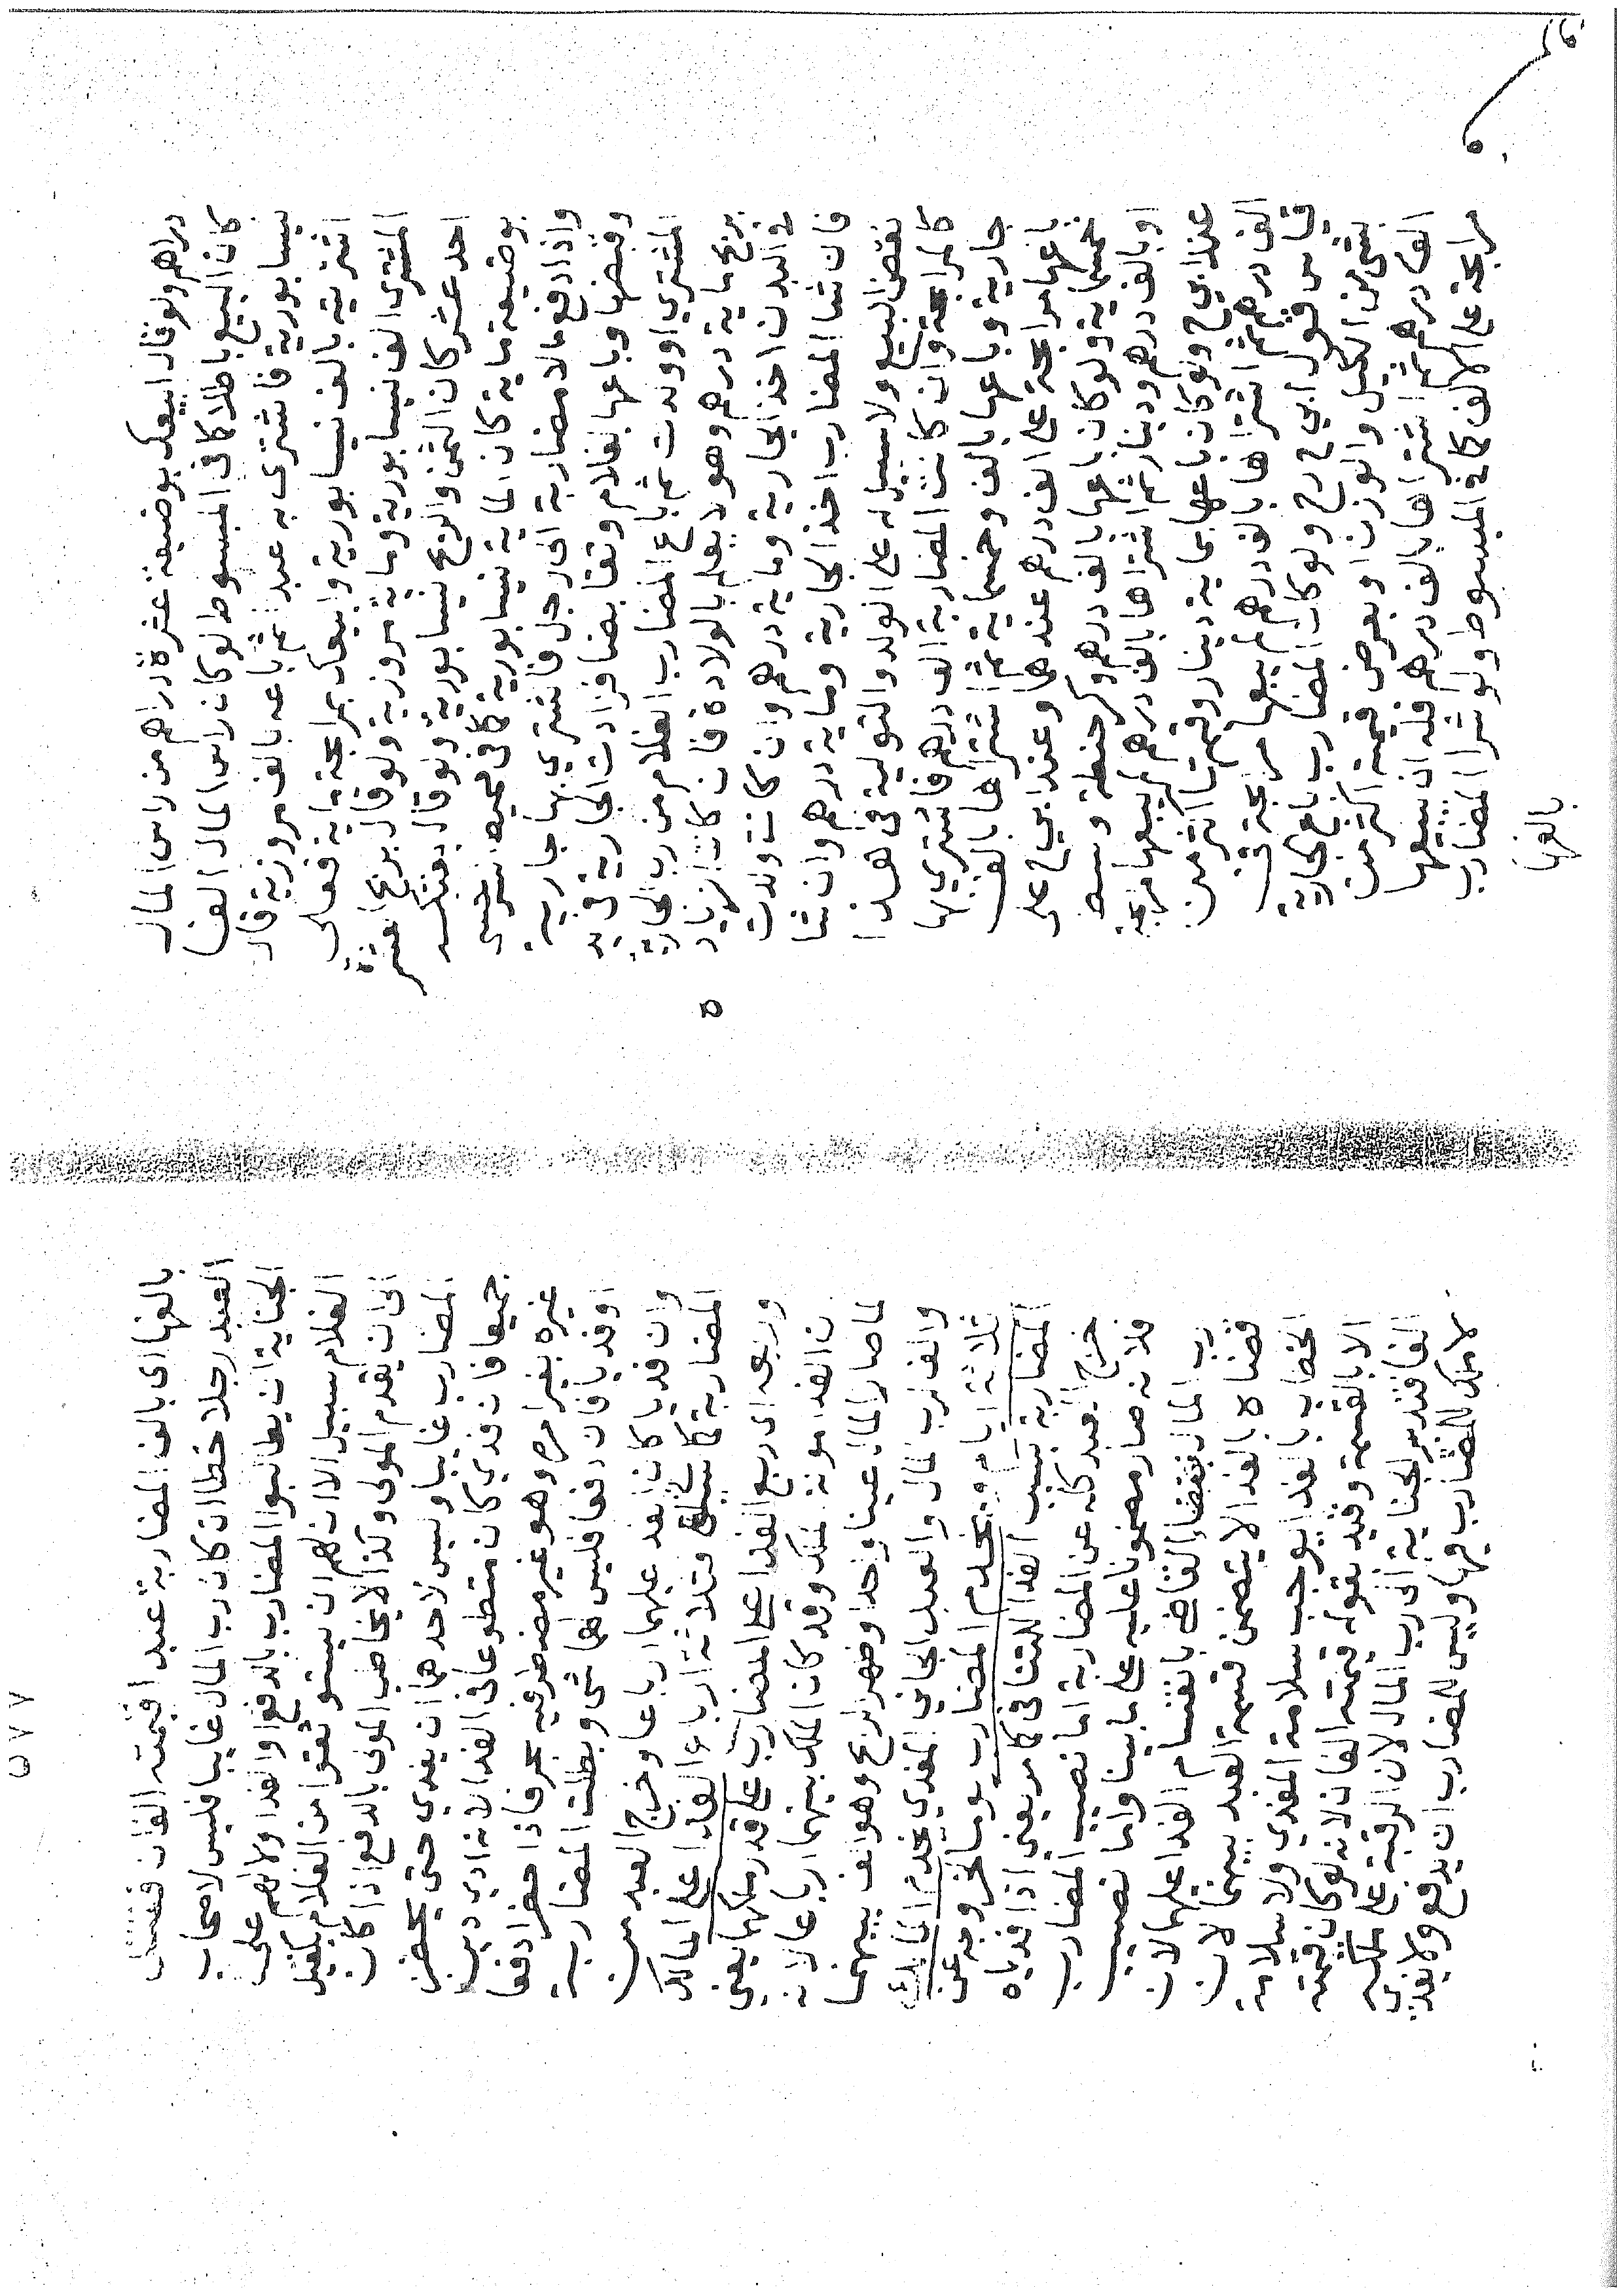 دراهم ولو قال ابيعك بوضيعة عشرة دراهم من راس المال
كان البيع باطلا كافي المبسوط لو كان راس المال الفا
نيسابورية فاشترى به عبد ثم باعه بالف مروزية قال
اشتريته بالف نيسابورية وابيعك بمرابحة ماية فعلى
المشترى الف نيسابورية وماية مروزية ولو قال بربح العشرة
احد عشر كان الثمن والربح نيسابورية ولو قال بعتك
بوضيعة ماية كان الماية نيسابورية كافي محيط السرخسي
واذا دفع مالا مضاربة الى رجل فاشترى بها جارية
وقبضها وباعها بغلام وتقابضا فزادت الجارية في يد
المشترى او ولدت ثم باع المضارب الغلام من رب الجارية
بربح ماية درهم وهو لا يعلم بالولادة فان كانت الزيادة
في البدن اخذ الجارية وماية درهم وان كانت ولدت
فان شا المضارب اخذ الجارية وماية درهم وان شا
نقض البيع ولا سبيل له على الولد والتولية في هذا
كالمرابحة وان كانت المضاربة الف درهم فاشترى بها
جارية وباعها بالف وخمسماية ثم اشتراها بالف
باعها مرابحة على الف درهم عندهما وعند ابي ح على
خمسماية ولو كان باعها بالف درهم وكر حنطة وسط
او بالف درهم ودينار ثم اشتراها بالف درهم لم يبعها مرابحة
عند ابي ح ولو كان باعها بماية دينار وقيمتها اكثر من
الف درهم ثم اشتراها بالف درهم لم يبعها مرابحة في
قياس قول ابي ح رح ولو كان المضارب باع الجارية
بشي من الكيل والوزن او بعرض قيمته اكثر من
الف درهم ثم اشتراها بالف درهم فله ان يبيعها
مرابحة على الالف كافي المبسوط ولو شرا المضارب
بالفها
بالفها اى بالف المضاربة عبدا قيمته الفان فقتل
العبد رجلا خطا ان كان رب المال غايبا فليس لاصحاب
الجناية ان يطالبوا المضارب بالدفع او الفدا ولا لهم على
الغلام سبيل الا ان لهم ان يستوثقوا من الغلام بكفيل
الى ان يقدم المولى وكذا لا يخاطب المولى بالدفع اذا كان
المضارب غايبا وليس لاحدهما ان يفدي حتى يحضر
جميعا فان فدى كان متطوعا في الفدا لانه ادى دين
غيره بغير امره وهو غير مضطر فيه بحر فاذا حضرا دفعا
او فديا فان دفعا فليس لهما شي وبطلت المضاربة
وان فديا كان الفدا عليهما ارباعا وخرج العبد من
المضاربة كاسيق فثلاثة ارباع الفدا على المالك
وربعه اى ربع الفدا على المضارب على قدر ملكهما يعني
ن الفدا مونة الملك وقد كان الملك بينهما ارباعا لانه
لما صار المال عينا واحدا وظهر الربح وهو الف بينهما
والف لرب المال والعبد الجاني المفدي يخدم المالك
ثلاثة ايام ويخدم المضارب يوما لخروجه عن
المضاربة بسبب الفدا للتنافي كامر يعني اذا فدياه
خرج العبد كله عن المضاربة اما نصيب المضارب
فلانه صار مضمونا عليه على ما بينا واما نصيب
رب المال بقضاء القاضي بانقسام الفدا عليهما لان
قضاه بالفدا لا يتضمن قسمة العبد بينهما لان
الخطاب بالفدا يوجب سلامة المفدي ولا سلامة
الا بالقسمة وقيد بقوله قيمته الفان لانه لو كان قيمته
الفا فتدبير الجناية الى رب المال لان الرقبة على ملكه
لا ملك للمضارب فيها وليس للمضارب ان يدفع ولا يفدى
٥٧٧